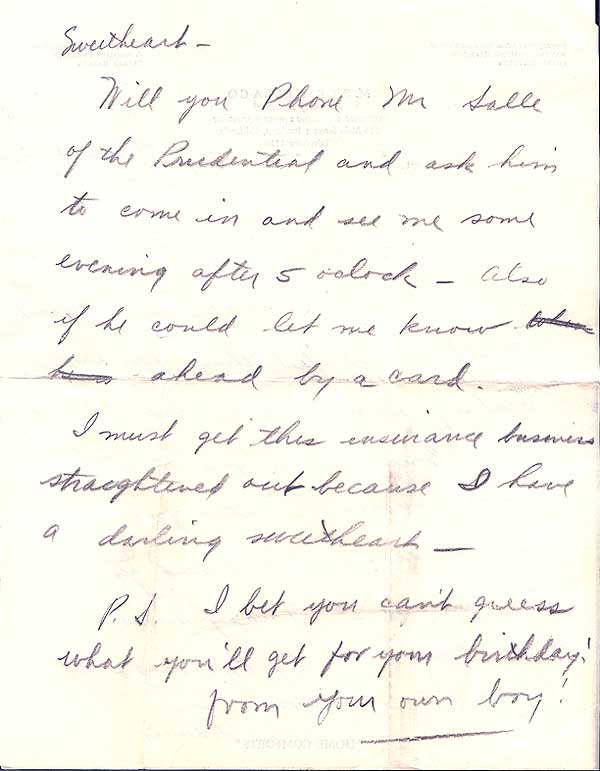 Sweetheart -
Will you Phone Mr Salle
of the Prudential and ask him
to come in and see me some
evening after 5 oclock - Also
if he could let me know
ahead by a card.
I must get this insurance business
straightened out because I have
a darling sweetheart -
P.S. I bet you can't guess
what you'll get for your birthday!
from your own boy!
"HOME COMFORTS"